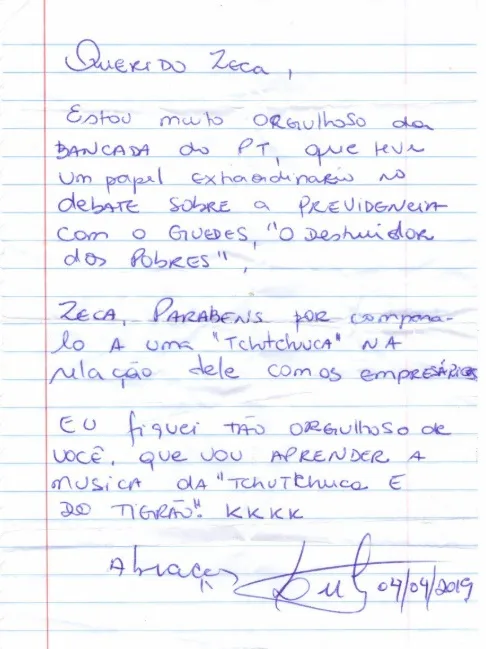 Querido Zeca,
Estou muito orgulhoso da
bancada do PT, que teve
um papel extraordinario no
debate sobre a Previdencia
com o Guedes, "o Destruidor
dos Pobres",
Zeca, Parabens por compara-
lo a uma "Tchutchuca" na
relação dele com os empresários
Eu fiquei tão orgulhoso de
você, que vou aprender a
musica da "Tchutchuca e
do Tigrão". KKKK
Abraços
Lula 04/04/2019